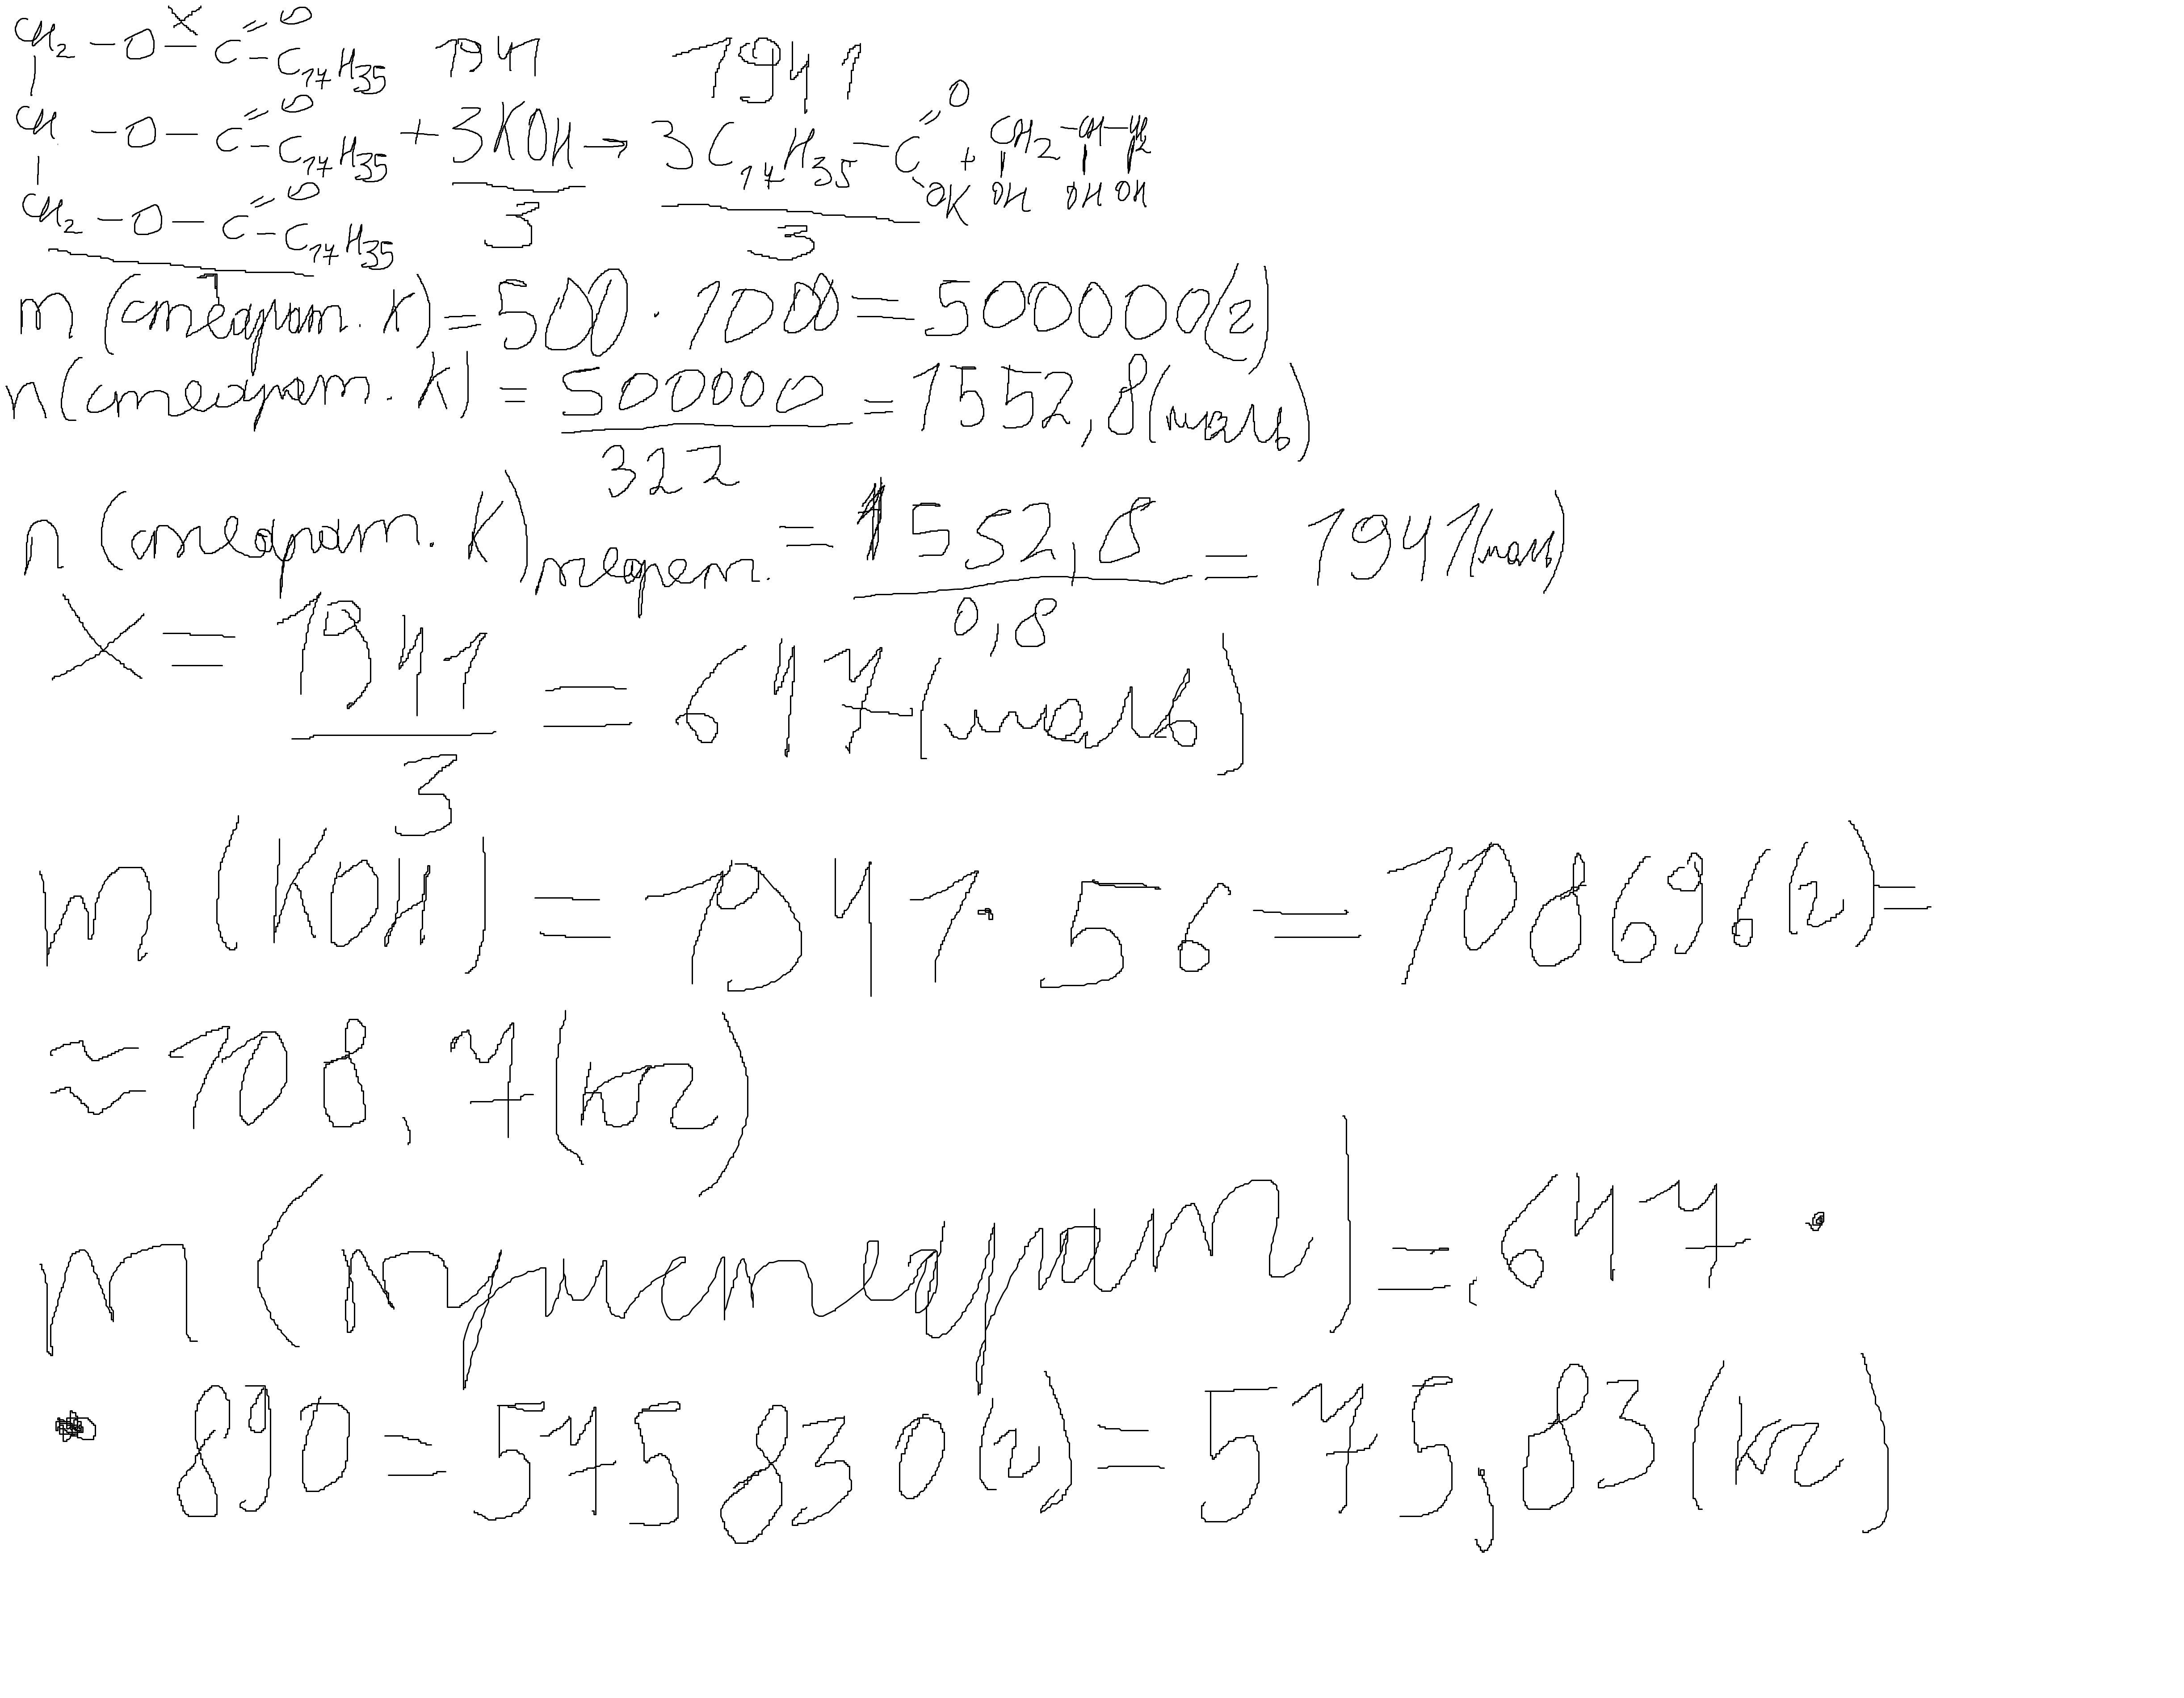 CH₂ – O – C = O – C₁₇H₃₅ X 1941 1941
CH – O – C = O – C₁₇H₃₅ + 3KOH → 3C₁₇H₃₅ – C = O OK + CH₂ – CH – CH₂ OH OH OH
CH₂ – O – C = O – C₁₇H₃₅ 3 3
1
m (стеарат. К) = 500 · 1000 = 500000(г)
n (стеарат. К) = 500000 / 322 = 1552,8(моль)
n (стеарат. К) теорет. = 1552,8 / 0,8 = 1941(моль)
X = 1941 / 3 = 647(моль)
m (KOH) = 1941 · 56 = 108696(г) =
≈ 108,7(кг)
m (тристеарат) = 647 ·
· 890 = 575830(г) = 575,83(кг)